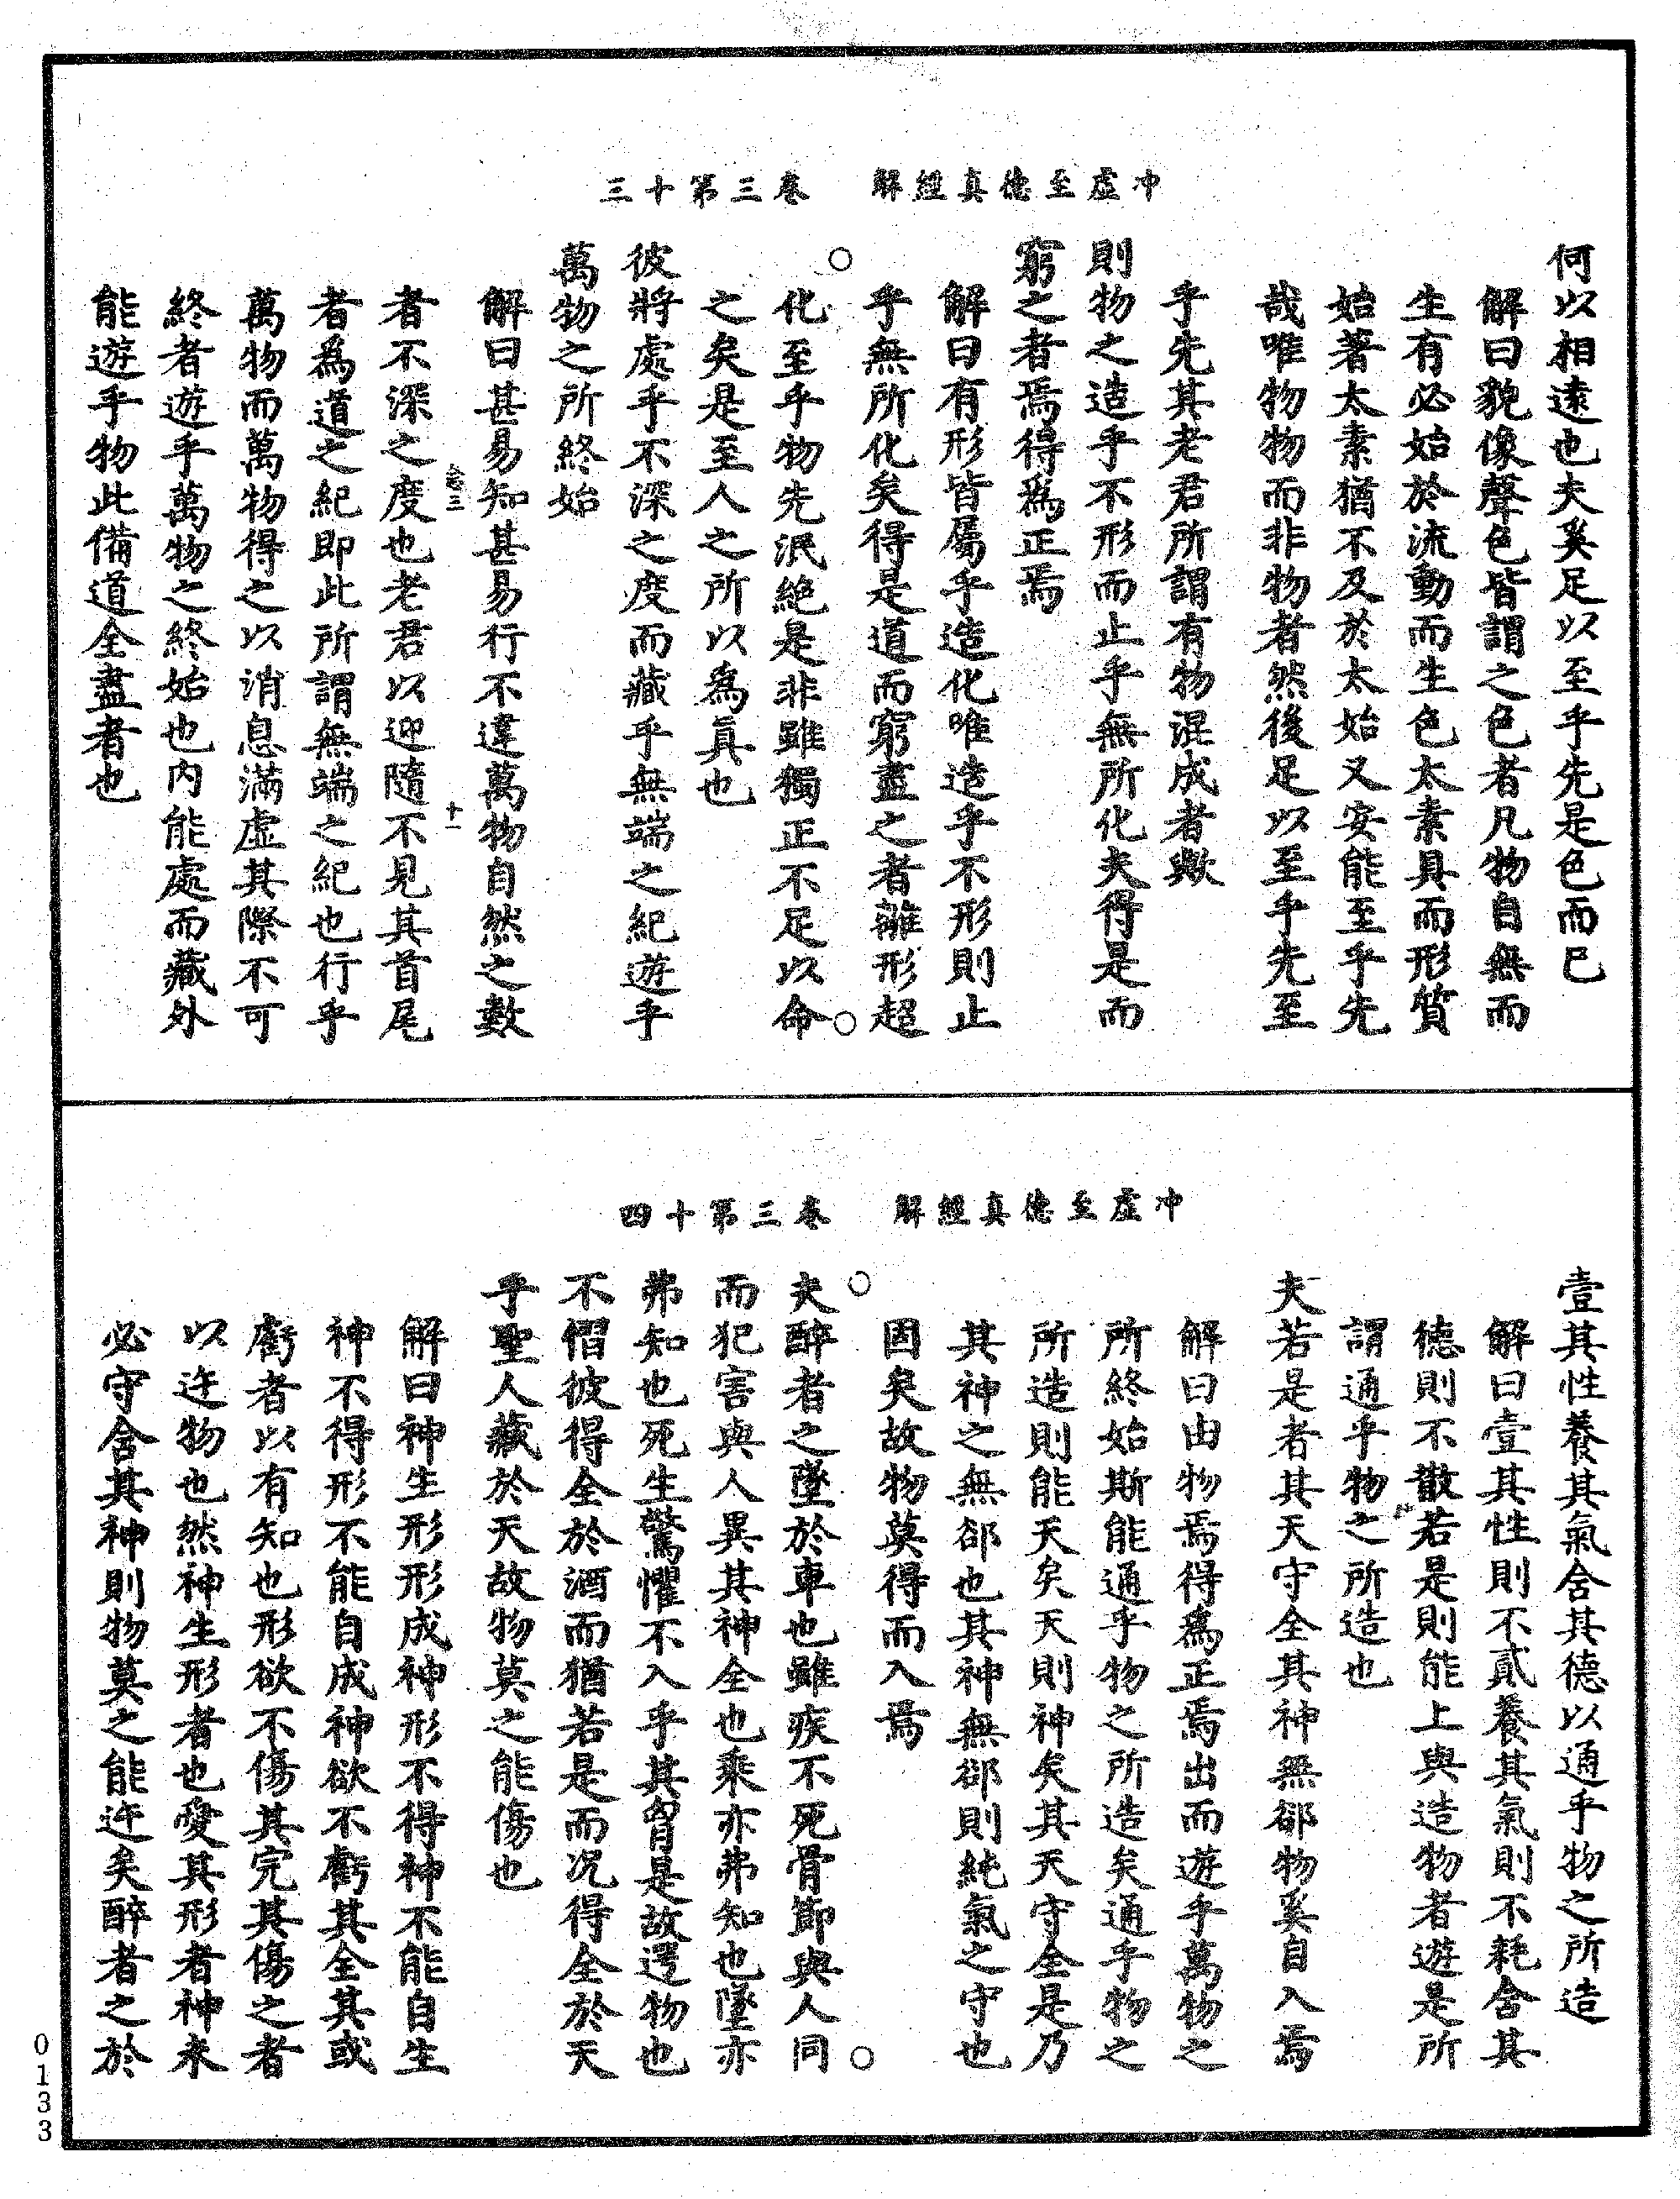 冲虛至德真經解　卷三第十三
何以相遠也夫奚足以至乎先是色而已
解曰貌像聲色皆謂之色者凡物自無而
生有必始於流動而生色太素具而形質
始著太素猶不及於太始又安能至乎先
哉唯物物而非物者然後足以至乎先至
乎先其老君所謂有物混成者歟
則物之造乎不形而止乎無所化夫得是而
窮之者焉得爲正焉
解曰有形皆屬乎造化唯造乎不形則止
乎無所化矣得是道而窮盡之者離形超
化至乎物先泯絶是非雖獨正不足以命
之矣是至人之所以爲真也
彼將處乎不深之度而藏乎無端之紀遊乎
萬物之所終始
解曰甚易知甚易行不違萬物自然之數
卷三　十一
者不深之度也老君以迎隨不見其首尾
者爲道之紀即此所謂無端之紀也行乎
萬物而萬物得之以消息滿虛其際不可
終者遊乎萬物之終始也内能處而藏外
能遊乎物此備道全盡者也
冲虛至德真經解　卷三第十四
壹其性養其氣含其德以通乎物之所造
解曰壹其性則不貳養其氣則不耗含其
德則不散若是則能上與造物者遊是所
謂通乎物之所造也
夫若是者其天守全其神無郤物奚自入焉
解曰由物焉得爲正焉出而遊乎萬物之
所終始斯能通乎物之所造矣通乎物之
所造則能天矣天則神矣其天守全是乃
其神之無郤也其神無郤則純氣之守也
因矣故物莫得而入焉
夫醉者之墜於車也雖疾不死骨節與人同
而犯害與人異其神全也乘亦弗知也墜亦
弗知也死生驚懼不入乎其胷是故遻物也
不慴彼得全於酒而猶若是而况得全於天
乎聖人藏於天故物莫之能傷也
解曰神生形形成神形不得神不能自生
神不得形不能自成神欲不虧其全其或
虧者以有知也形欲不傷其完其傷之者
以迕物也然神生形者也愛其形者神未
必守含其神則物莫之能迕矣醉者之於
0133